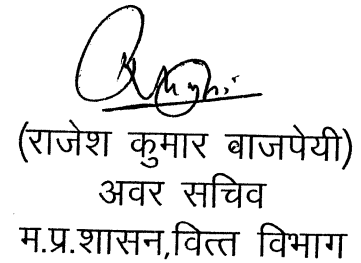 (राजेश कुमार बाजपेयी)
अवर सचिव
म.प्र.शासन,वित्त विभाग